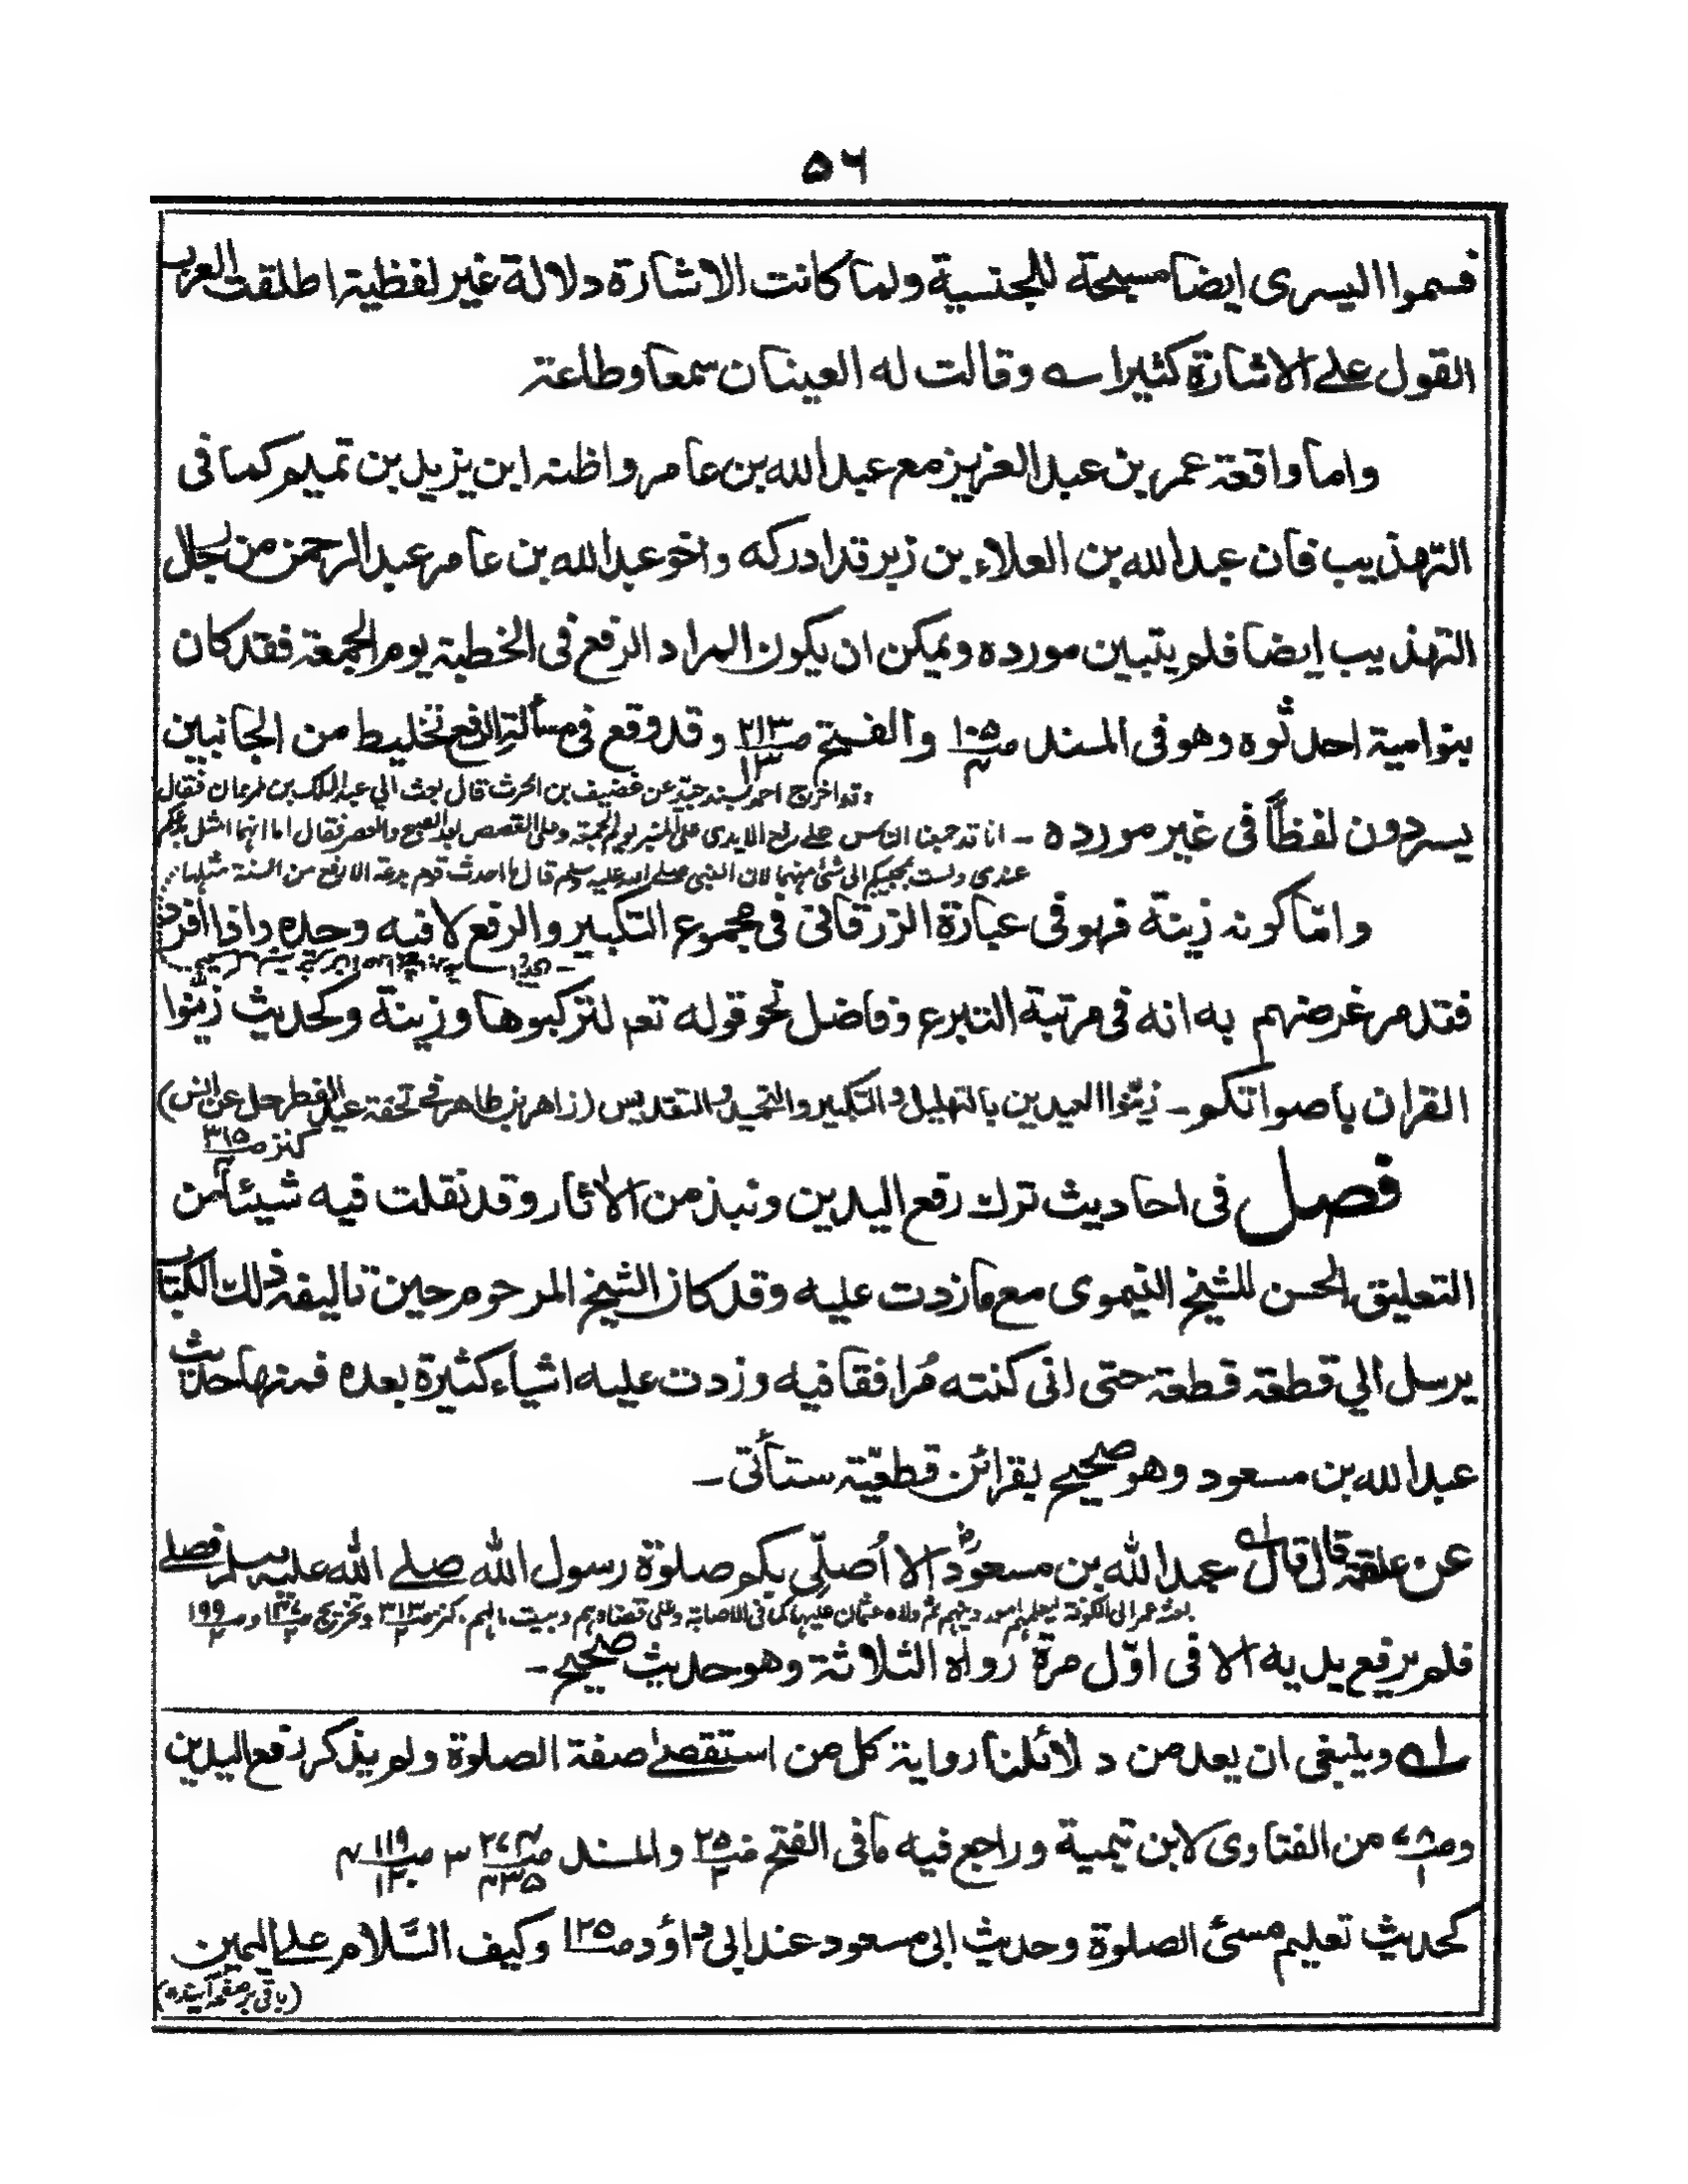 ۵٦
فسموا اليسرى ايضا مسبحة للجنسية ولما كانت الاشارة دلالة غير لفظية اطلقت العرب
القول على الاشارة كثيرا ے وقالت له العينان سمعا وطاعة
واما واقعة عمر بن عبد العزيز مع عبد الله بن عامر واظنه ابن يزيد بن تميم كما فى
التهذيب فان عبد الله بن العلاء بن زبر قد ادركه واخو عبد الله بن عامر عبد الرحمن من رجال
التهذيب ايضا فلم يتبين مورده ويمكن ان يكون المراد الرفع فى الخطبة يوم الجمعة فقد كان
بنو امية احدثوه وهو فى المسند صـ ۱۰۵ ۴ والفتح صـ ۲۱۳ ۱۳ وقد وقع فى مسألة الرفع تخليط من الجانبين
وقد اخرج احمد بسند جيد عن غضيف بن الحرث قال بعث الي عبد الملك بن مروان فقال
يسردون لفظاً فى غير مورده - انا قد جمعنا الناس على رفع الايدى على المنبر يوم الجمعة وعلى القصص بعد الصبح والعصر فقال اما انهما امثل بدعكم
عندى ولست بمجيبكم الى شئ منهما لان النبى صلى الله عليه وسلم قال ما احدث قوم بدعة الا رفع من السنة مثلها
واما كونه زينة فهو فى عبارة الزرقانى فى مجموع التكبير والرفع لا فيه وحده واذا افرد
فقد مر غرضهم به انه فى مرتبة التبرع وفاضل نحو قوله تعم لتركبوها وزينة وكحديث زينوا
القران باصواتكم - زينوا العيدين بالتهليل والتكبير والتحميد والتقديس (زاهر بن طاهر فى تحفة عيد الفطر حل عن انس)
كنز صـ ۳۱۵ ۴
فصل فى احاديث ترك رفع اليدين ونبذ من الاثار وقد نقلت فيه شيئا من
التعليق الحسن للشيخ النيموى مع ما زدت عليه وقد كان الشيخ المرحوم حين تاليفه ذلك الكتاب
يرسل الي قطعة قطعة حتى انى كنته مُرافقا فيه وزدت عليه اشياء كثيرة بعده فمنها حديث
عبد الله بن مسعود وهو صحيح بقرائن قطعيّة ستأتى -
عن علقمة قال قال لے عبد الله بن مسعودؓ الا اُصلّى بكم صلوة رسول الله صلے الله عليه وسلم فصلے
بعثه عمر الى الكوفة ليعلمهم امور دينهم ثم ولاه عثمان عليها كما فى الاصابة وعلى قضاءهم وبيت مالهم كنز صـ ۳۱۳ ۲ وتخريج صـ ۲ وصـ ۱۹۹ ۲
فلم يرفع يديه الا فى اوّل مرة رواه الثلاثة وهو حديث صحيح -
لے وينبغى ان يعد من دلائلنا رواية كل من استقصے صفة الصلوة ولم يذكر رفع اليدين
وصـ ۱ من الفتاوى لابن تيمية وراجع فيه ما فى الفتح صـ ۲۵ ۲ والمسند صـ ۳ صـ ۱۱۹ ۱۲۰ ۴
كحديث تعليم مسئ الصلوة وحديث ابى مسعود عند ابى داؤد صـ ۱۲۵ وكيف السّلام على اليمين
(باقى بر صفحه آينده)